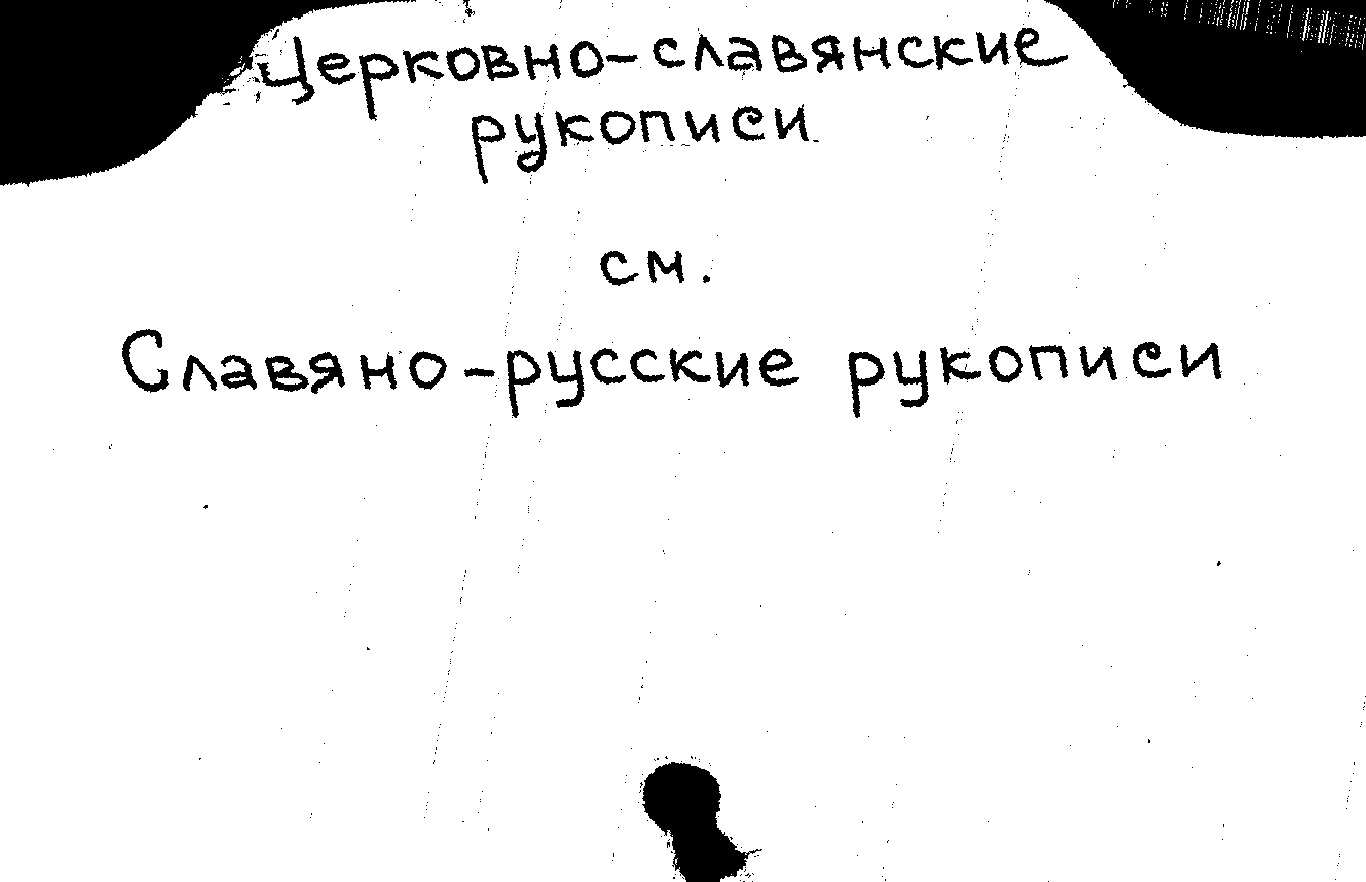 Церковно-славянские
рукописи
см.
Славяно-русские рукописи